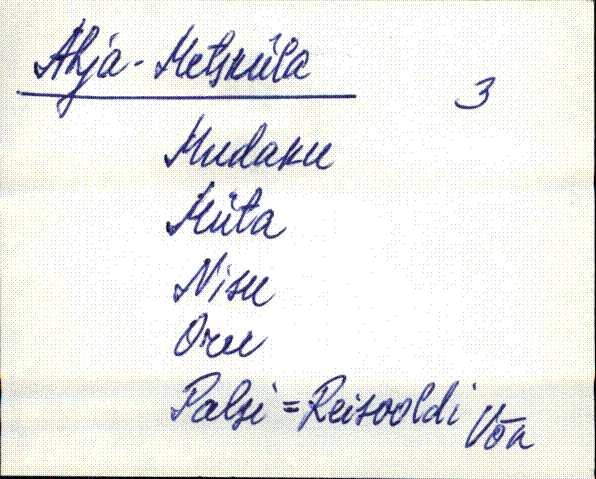 Ahja-Metsküla
3
Mudaku
Müta
Nisu
Oru
Palsi = Reisooldi Võn